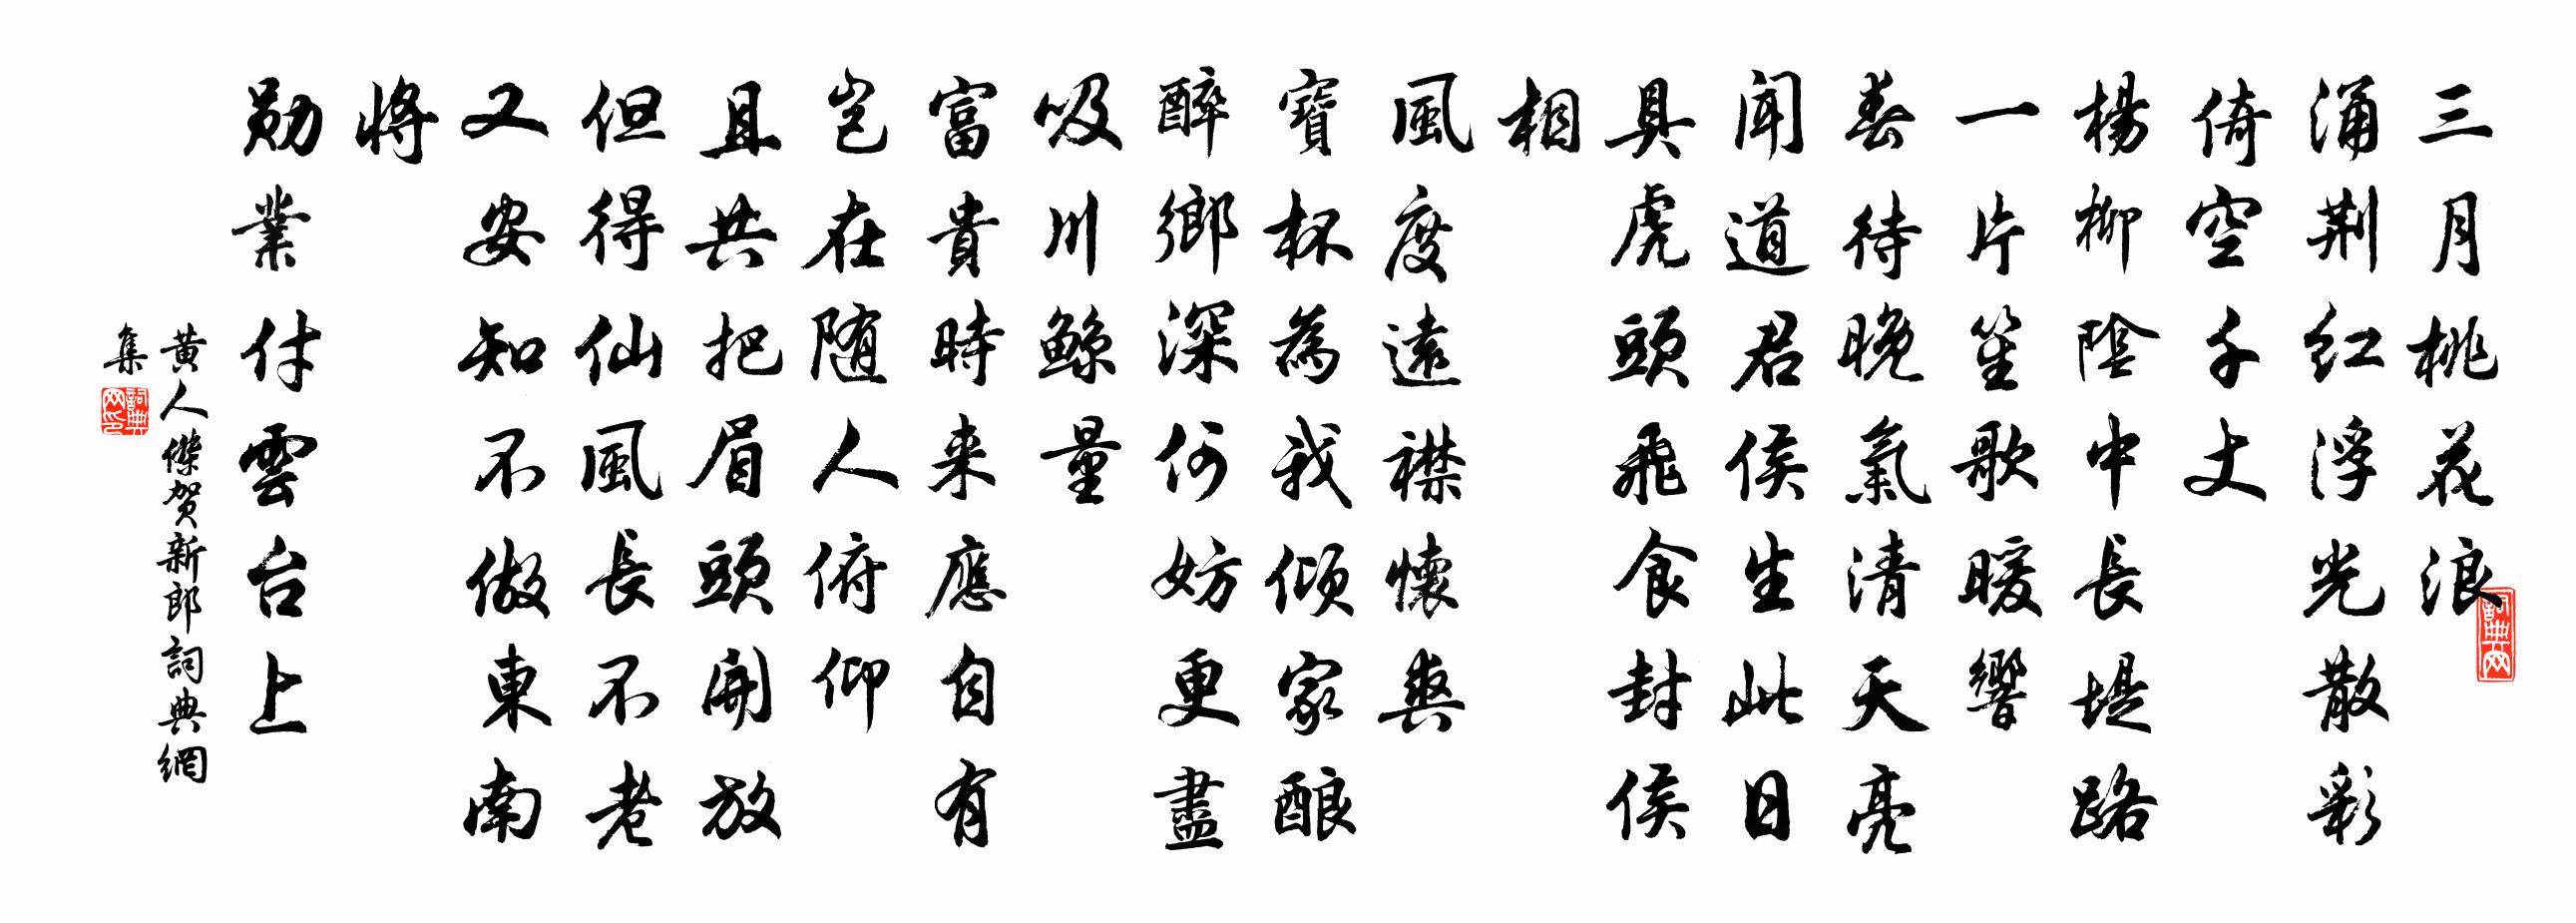 三月桃花浪
涌荆红浮光散彩
倚空千丈
楊柳陰中長堤路
一片笙歌暖響
春待晚氣清天亮
闻道君侯生此日
具虎頭飛食封侯
相
風度遠襟懷爽
寶杯為我傾家酿
醉鄉深何妨更盡
吸川鲸量
富貴時来應自有
岂在随人俯仰
且共把眉頭開放
但得仙風長不老
又安知不做東南
將
勋業付雲台上
黄人傑贺新郎詞典網
集
詞典网
詞典网印